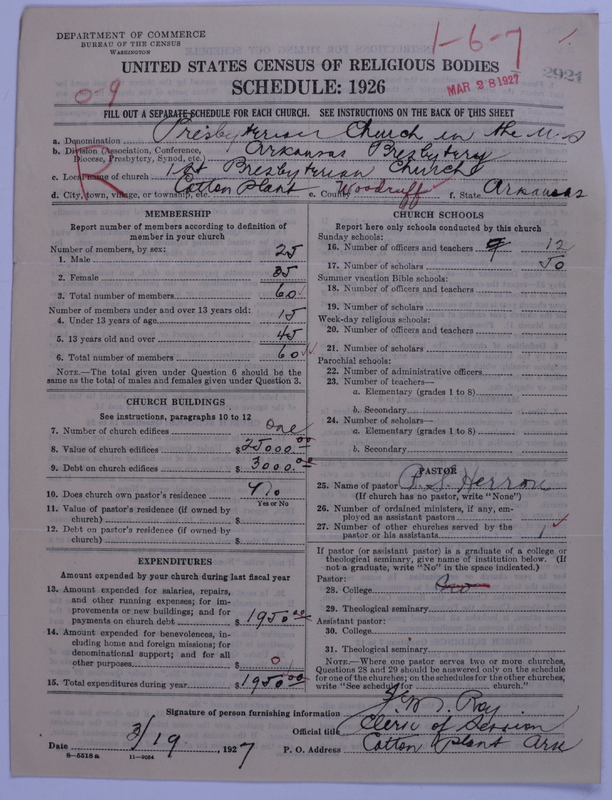 DEPARTMENT OF COMMERCE
BUREAU OF THE CENSUS
WASHINGTON
1-6-7
UNITED STATES CENSUS OF RELIGIOUS BODIES
SCHEDULE: 1926
MAR 28 1927
2924
0-9
FILL OUT A SEPARATE SCHEDULE FOR EACH CHURCH. SEE INSTRUCTIONS ON THE BACK OF THIS SHEET
R
a. Denomination Presbyterian Church in the U.S
b. Division (Association, Conference, Diocese, Presbytery, Synod, etc.) Arkansas Presbytery
c. Local name of church 1st Presbyterian Church
d. City, town, village, or township, etc. Cotton Plant e. County Woodruff f. State Arkansas
MEMBERSHIP
Report number of members according to definition of
member in your church
Number of members, by sex:
1. Male 25
2. Female 35
3. Total number of members 60
Number of members under and over 13 years old:
4. Under 13 years of age 15
5. 13 years old and over 45
6. Total number of members 60
NOTE.—The total given under Question 6 should be
same as the total of males and females given under Question 3.
CHURCH BUILDINGS
See instructions, paragraphs 10 to 12
7. Number of church edifices One
8. Value of church edifices $ 25000.00
9. Debt on church edifices $ 3000.00
10. Does church own pastor's residence No
Yes or No
11. Value of pastor's residence (if owned by
church) $
12. Debt on pastor's residence (if owned by
church) $
EXPENDITURES
Amount expended by your church during last fiscal year
13. Amount expended for salaries, repairs,
and other running expenses; for im-
provements or new buildings; and for
payments on church debt $ 1950.00
14. Amount expended for benevolences, in-
cluding home and foreign missions; for
denominational support; and for all
other purposes $ 0
15. Total expenditures during year $ 1950.00
CHURCH SCHOOLS
Report here only schools conducted by this church
Sunday schools:
16. Number of officers and teachers 12
17. Number of scholars 50
Summer vacation Bible schools:
18. Number of officers and teachers
19. Number of scholars
Week-day religious schools:
20. Number of officers and teachers
21. Number of scholars
Parochial schools:
22. Number of administrative officers
23. Number of teachers—
a. Elementary (grades 1 to 8)
b. Secondary
24. Number of scholars—
a. Elementary (grades 1 to 8)
b. Secondary
PASTOR
25. Name of pastor P. S. Herron
(If church has no pastor, write "None")
26. Number of ordained ministers, if any, em-
ployed as assistant pastors
27. Number of other churches served by the
pastor or his assistants 1
If pastor (or assistant pastor) is a graduate of a college or
theological seminary, give name of institution below. (If
not a graduate, write "No" in the space indicated.)
Pastor:
28. College
29. Theological seminary
Assistant pastor:
30. College
31. Theological seminary
NOTE.—Where one pastor serves two or more churches,
Questions 28 and 29 should be answered only on the schedule
for one of the churches; on the schedules for the other churches,
write "See schedule for church."
Signature of person furnishing information J. M. Roy
Official title Clerk of Session
Date 3/19, 1927 P. O. Address Cotton Plant Ark
8-5518a 11-9024